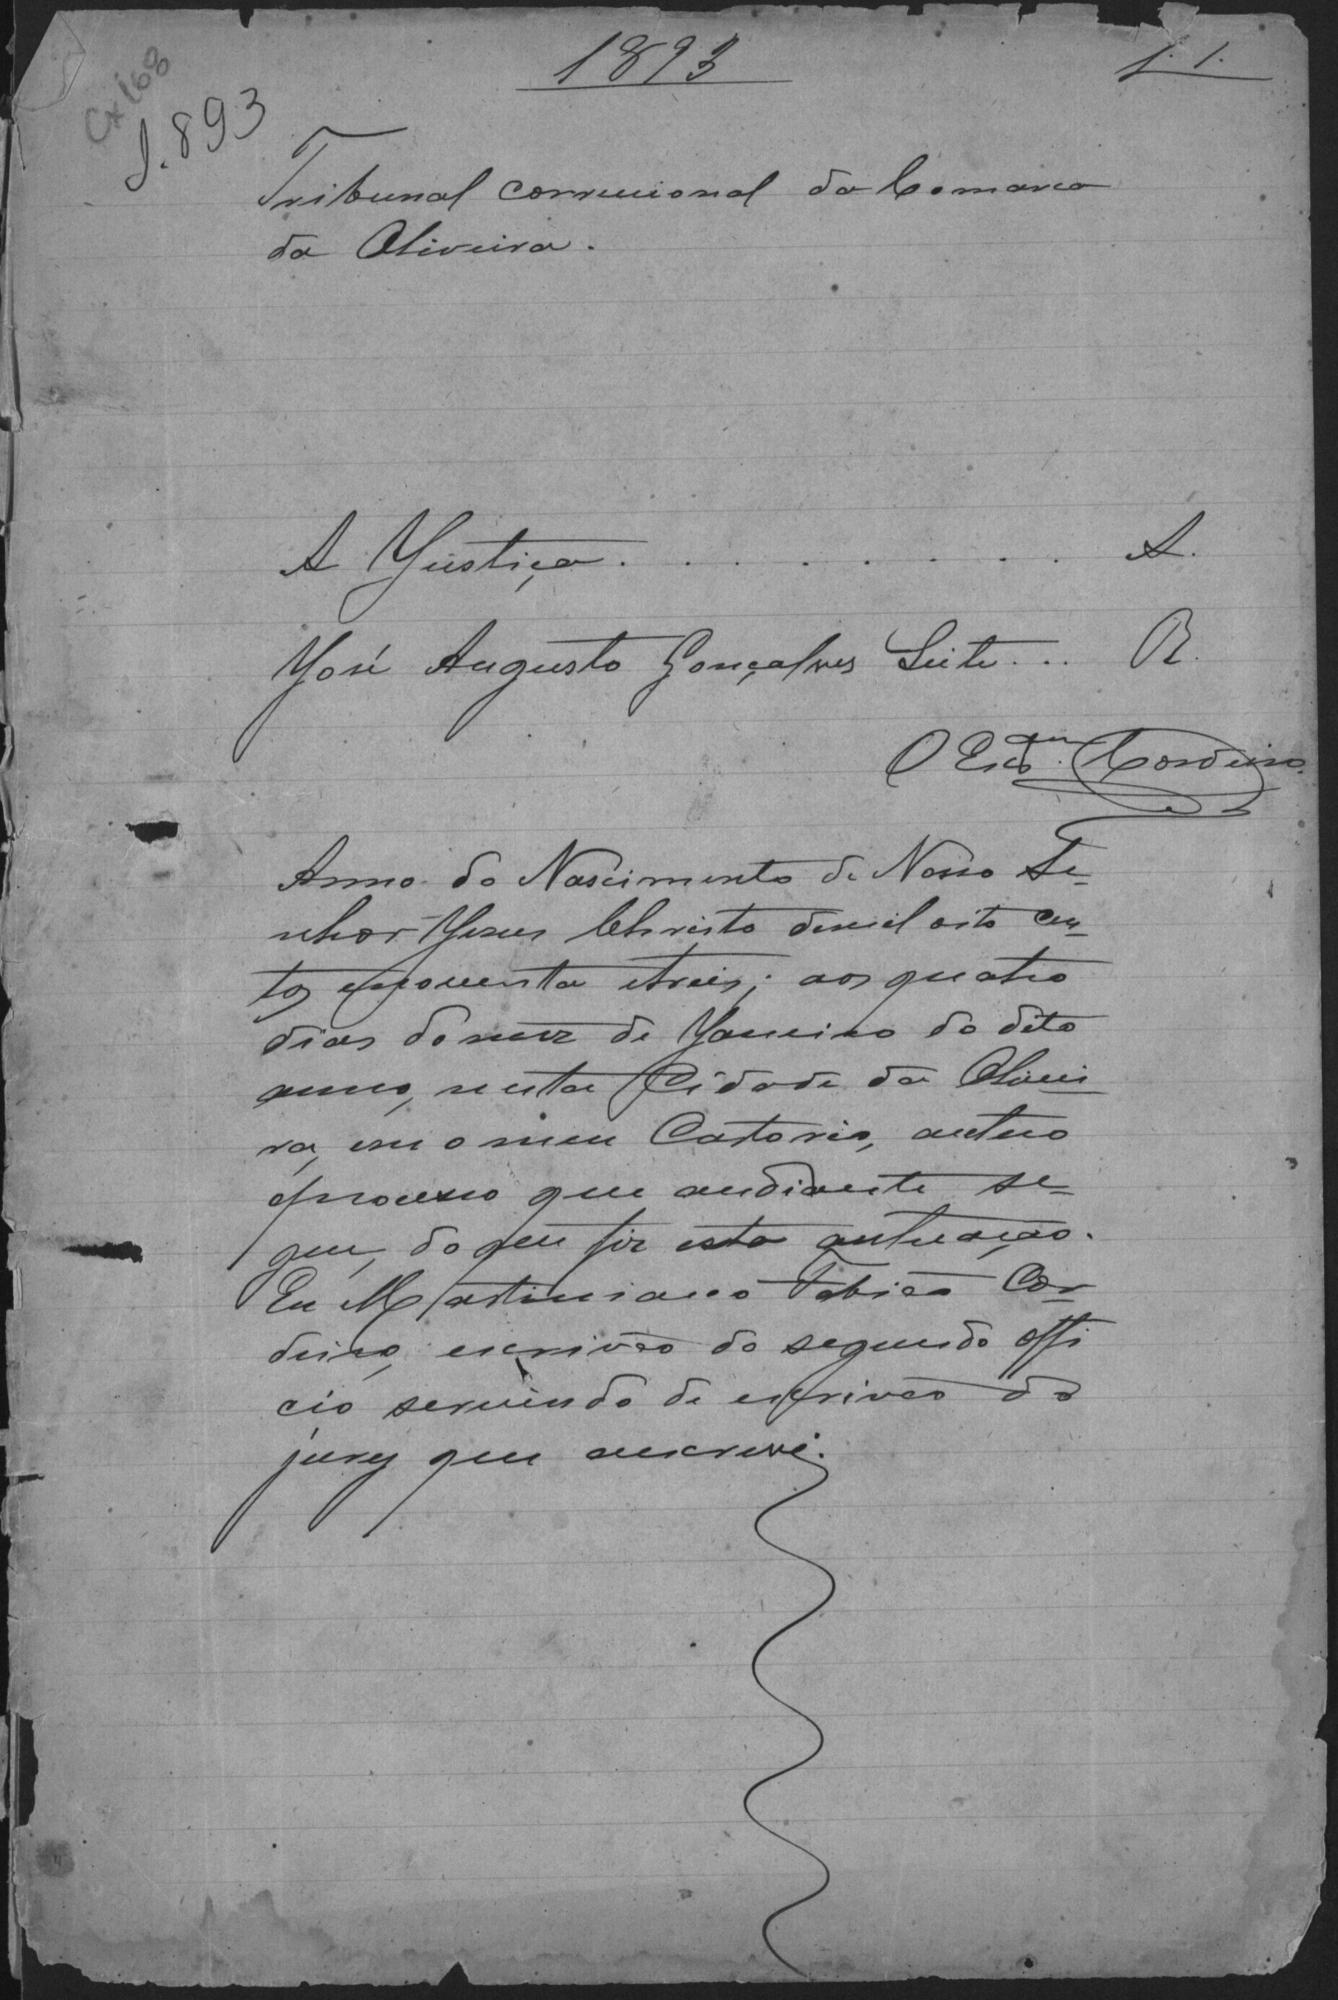 1893
f. 1.
Cx 168
1.893
Tribunal correcional da Comarca
da Oliveira.
A Justiça . . . . . . . . A.
José Augusto Gonçalves Leite . . . R.
O Escam. Cordeiro
Anno do Nascimento de Nosso Se-
nhor Jesus Christo de mil oito cen-
tos e noventa e treis; aos quatro
dias do mez de Janeiro do dito
anno, nesta Cidade da Olivei
ra, em o meu Cartorio, autuo
o processo que andiante se-
gue, do que fiz esta autuação.
Eu Martiniano Tobias Cor-
deiro, escrivão do segundo offi
cio servindo de escrivão do
jury que escrevi.